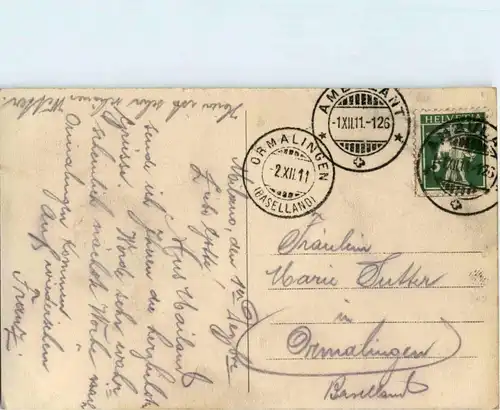 AMBULANT
-1.XII.11.-126
HELVETIA
5
ORMALINGEN
-2.XII.11
(BASELLAND)
Milano, den 1ten
Liebe
Aus Mailand
sende ich Ihnen die herzlichsten
Grüsse. Werde sehr
nächste Woche nach
Ormalingen kommen
Auf Wiedersehen
Franz
Hier ist sehr schönes Wetter.
Fräulein
Marie Sutter
in
Ormalingen
Baselland